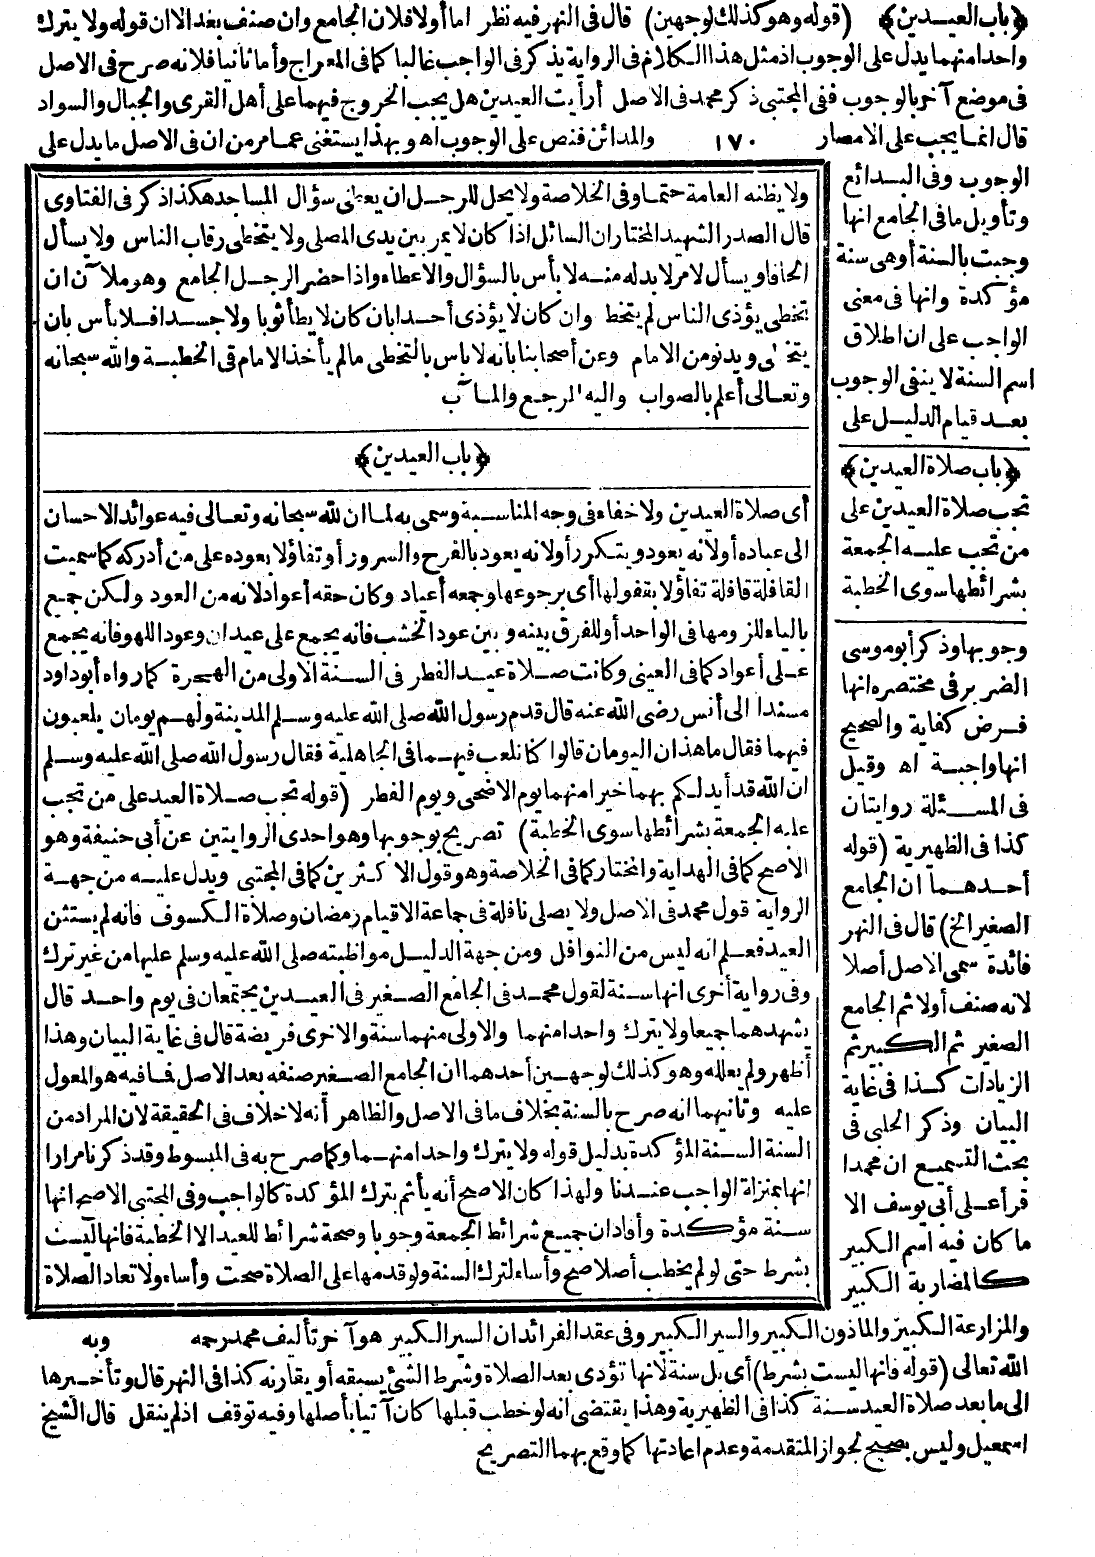 ﴿باب العيدين﴾ (قوله وهو كذلك لوجهين) قال فى النهر فيه نظر اما أولا فلان الجامع وان صنف بعد الا ان قوله ولا يترك
واحدا منهما يدل على الوجوب اذ مثل هذا الكلام فى الرواية يذكر فى الواجب غالبا كما فى المعراج وأما ثانيا فلانه صرح فى الاصل
فى موضع آخر بالوجوب ففى المجتبى ذكر محمد فى الاصل أرأيت العيدين هل يجب الخروج فيهما على أهل القرى والجبال والسواد
قال انما يجب على الامصار ١٧٠ والمدائن فنص على الوجوب اه وبهذا يستغنى عما مر من ان فى الاصل ما يدل على
الوجوب وفى البدائع
وتأويل ما فى الجامع انها
وجبت بالسنة أو هى سنة
مؤكدة وانها فى معنى
الواجب على ان اطلاق
اسم السنة لا ينفى الوجوب
بعد قيام الدليل على
﴿باب صلاة العيدين﴾
تجب صلاة العيدين على
من تجب عليه الجمعة
بشرائطها سوى الخطبة
وجوبها وذكر أبو موسى
الضرير فى مختصره انها
فرض كفاية والصحيح
انها واجبة اه وقيل
فى المسئلة روايتان
كذا فى الظهيرية (قوله
أحدهما ان الجامع
الصغير الخ) قال فى النهر
فائدة سمى الاصل أصلا
لانه صنف أولا ثم الجامع
الصغير ثم الكبير ثم
الزيادات كذا فى غاية
البيان وذكر الحلبى فى
بحث التسميع ان محمدا
قرأ على أبى يوسف الا
ما كان فيه اسم الكبير
كالمضاربة الكبير
ولا يظنه العامة حتما وفى الخلاصة ولا يحل للرجل ان يعطى سؤال المساجد هكذا ذكر فى الفتاوى
قال الصدر الشهيد المختار ان السائل اذا كان لا يمر بين يدى المصلى ولا يتخطى رقاب الناس ولا يسأل
الحافا ويسأل لامر لا بد له منه لا بأس بالسؤال والاعطاء واذا حضر الرجل الجامع وهو ملآن ان
تخطى يؤذى الناس لم يتخط وان كان لا يؤذى أحدا بان كان لا يطأ ثوبا ولا جسدا فلا بأس بان
يتخطى ويدنو من الامام وعن أصحابنا بانه لا باس بالتخطى مالم يأخذ الامام فى الخطبة والله سبحانه
وتعالى أعلم بالصواب واليه المرجع والمآب
﴿باب العيدين﴾
أى صلاة العيدين ولا خفاء فى وجه المناسبة وسمى به لما ان لله سبحانه وتعالى فيه عوائد الاحسان
الى عباده أو لانه يعود ويتكرر أو لانه يعود بالفرح والسرور أو تفاؤلا بعوده على من أدركه كما سميت
القافلة قافلة تفاؤلا بقفولها أى برجوعها وجمعه أعياد وكان حقه أعواد لانه من العود ولكن جمع
بالياء للزومها فى الواحد أو للفرق بينه وبين عود الخشب فانه يجمع على عيدان وعود اللهو فانه يجمع
على أعواد كما فى العينى وكانت صلاة عيد الفطر فى السنة الاولى من الهجرة كما رواه أبو داود
مسندا الى أنس رضى الله عنه قال قدم رسول الله صلى الله عليه وسلم المدينة ولهم يومان يلعبون
فيهما فقال ما هذان اليومان قالوا كنا نلعب فيهما فى الجاهلية فقال رسول الله صلى الله عليه وسلم
ان الله قد أبدلكم بهما خيرا منهما يوم الاضحى ويوم الفطر (قوله تجب صلاة العيد على من تجب
عليه الجمعة بشرائطها سوى الخطبة) تصريح بوجوبها وهو احدى الروايتين عن أبى حنيفة وهو
الاصح كما فى الهداية والمختار كما فى الخلاصة وهو قول الاكثرين كما فى المجتبى ويدل عليه من جهة
الرواية قول محمد فى الاصل ولا يصلى نافلة فى جماعة الاقيام رمضان وصلاة الكسوف فانه لم يستثن
العيد فعلم انه ليس من النوافل ومن جهة الدليل مواظبته صلى الله عليه وسلم عليها من غير ترك
وفى رواية أخرى انها سنة لقول محمد فى الجامع الصغير فى العيدين يجتمعان فى يوم واحد قال
يشهدهما جميعا ولا يترك واحدا منهما والاولى منهما سنة والاخرى فريضة قال فى غاية البيان وهذا
أظهر ولم يعلله وهو كذلك لوجهين أحدهما ان الجامع الصغير صنفه بعد الاصل فما فيه هو المعول
عليه وثانيهما انه صرح بالسنة بخلاف ما فى الاصل والظاهر أنه لا خلاف فى الحقيقة لان المراد من
السنة السنة المؤكدة بدليل قوله ولا يترك واحدا منهما وكما صرح به فى المبسوط وقد ذكرنا مرارا
انها بمنزلة الواجب عندنا ولهذا كان الاصح أنه يأثم بترك المؤكدة كالواجب وفى المجتبى الاصح انها
سنة مؤكدة وأفاد ان جميع شرائط الجمعة وجوبا وصحة شرائط للعيد الا الخطبة فانها ليست
بشرط حتى لو لم يخطب أصلا صح وأساء لترك السنة ولو قدمها على الصلاة صحت وأساء ولا تعاد الصلاة
والمزارعة الكبير والماذون الكبير والسير الكبير وفى عقد الفرائد ان السير الكبير هو آخر تأليف محمد رحمه وبه
الله تعالى (قوله فانها ليست بشرط) أى بل سنة لانها تؤدى بعد الصلاة وشرط الشئ يسبقه أو يقارنه كذا فى النهر قال وتأخيرها
الى ما بعد صلاة العيد سنة كذا فى الظهيرية وهذا يقتضى انه لو خطب قبلها كان آتيا بأصلها وفيه توقف اذ لم ينقل قال الشيخ
اسمعيل وليس بصحيح لجواز المتقدمة وعدم اعادتها كما وقع بهما التصريح